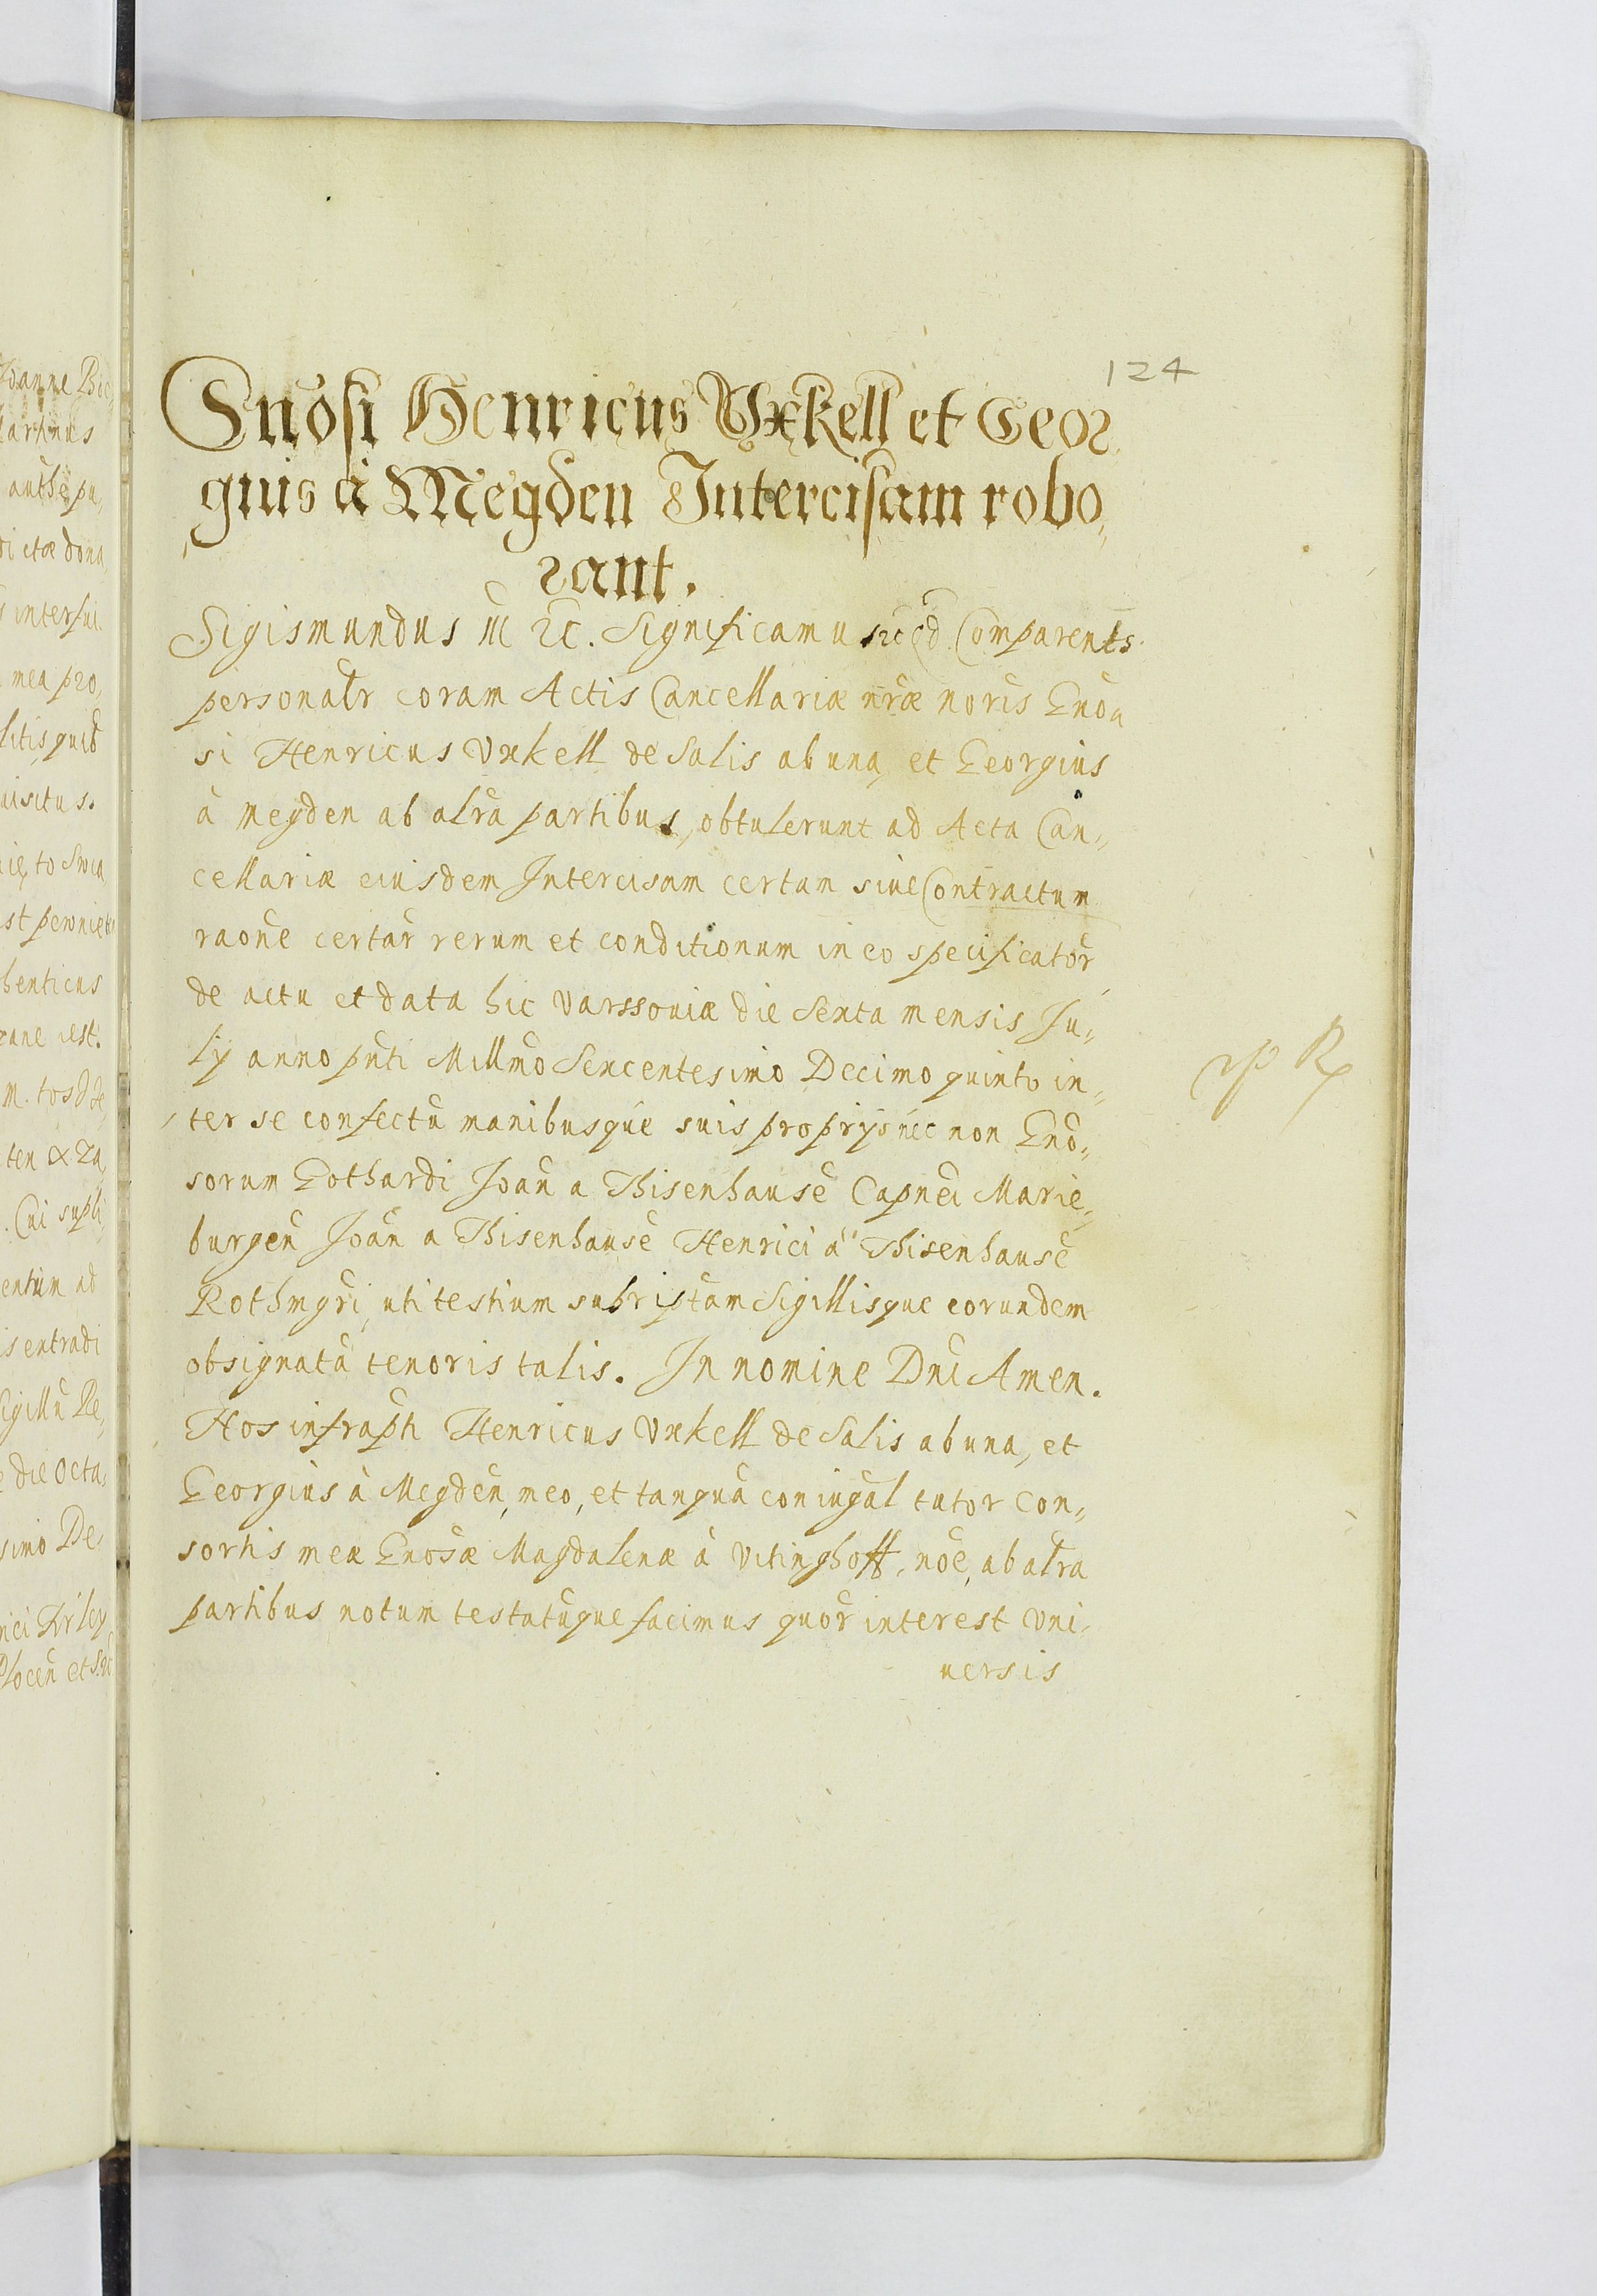 124
Gnosi Henricus Vxkell et Geor,
gius à Meyden Intercisam robo,,
rant.
Sigismundus III etc. Significamus etc qd. Comparents
personalr coram Actis Cancellariæ nræ noris Gno,,
si Henricus Vxkell de Salis ab una, et Georgius
à Meyden ab alra partibus, obtulerunt ad Acta Can,,
cellariæ eiusdem Intercisam certam siue Contractum
raone certar rerum et conditionum in eo specificator
de actu et data hic Varssouiæ die Sexta mensis Ju,,
ly anno pnti Millmo Sexcentesimo Decimo quinto in,,
ter se confectū manibusque suis proprÿs nec non Gno,,
sorum Gothardi Joan a Thisenhause Capnei Marie,,
burgen Joan a Thisenhause Henrici à Thisenhause
Rothmgri, uti testium subriptam Sigillisque eorundem
obsignatā tenoris talis. In nomine Dni Amen.
Nos infraph Henricus Vxkell de Salis ab una, et
Georgius à Meyden, meo, et tanquā coniugal tutor Con,,
sortis meæ Gnosæ Magdalenæ à Vitinghoff, noe, ab alra
partibus notum testatūque facimus quor interest Vni,
uersis
Joanne
artinus
mea pro,
litis quib
uisitus.
henticus
Cui supli
entum ad
is extradi
Sigillū Re,
die Octa,
simo De,